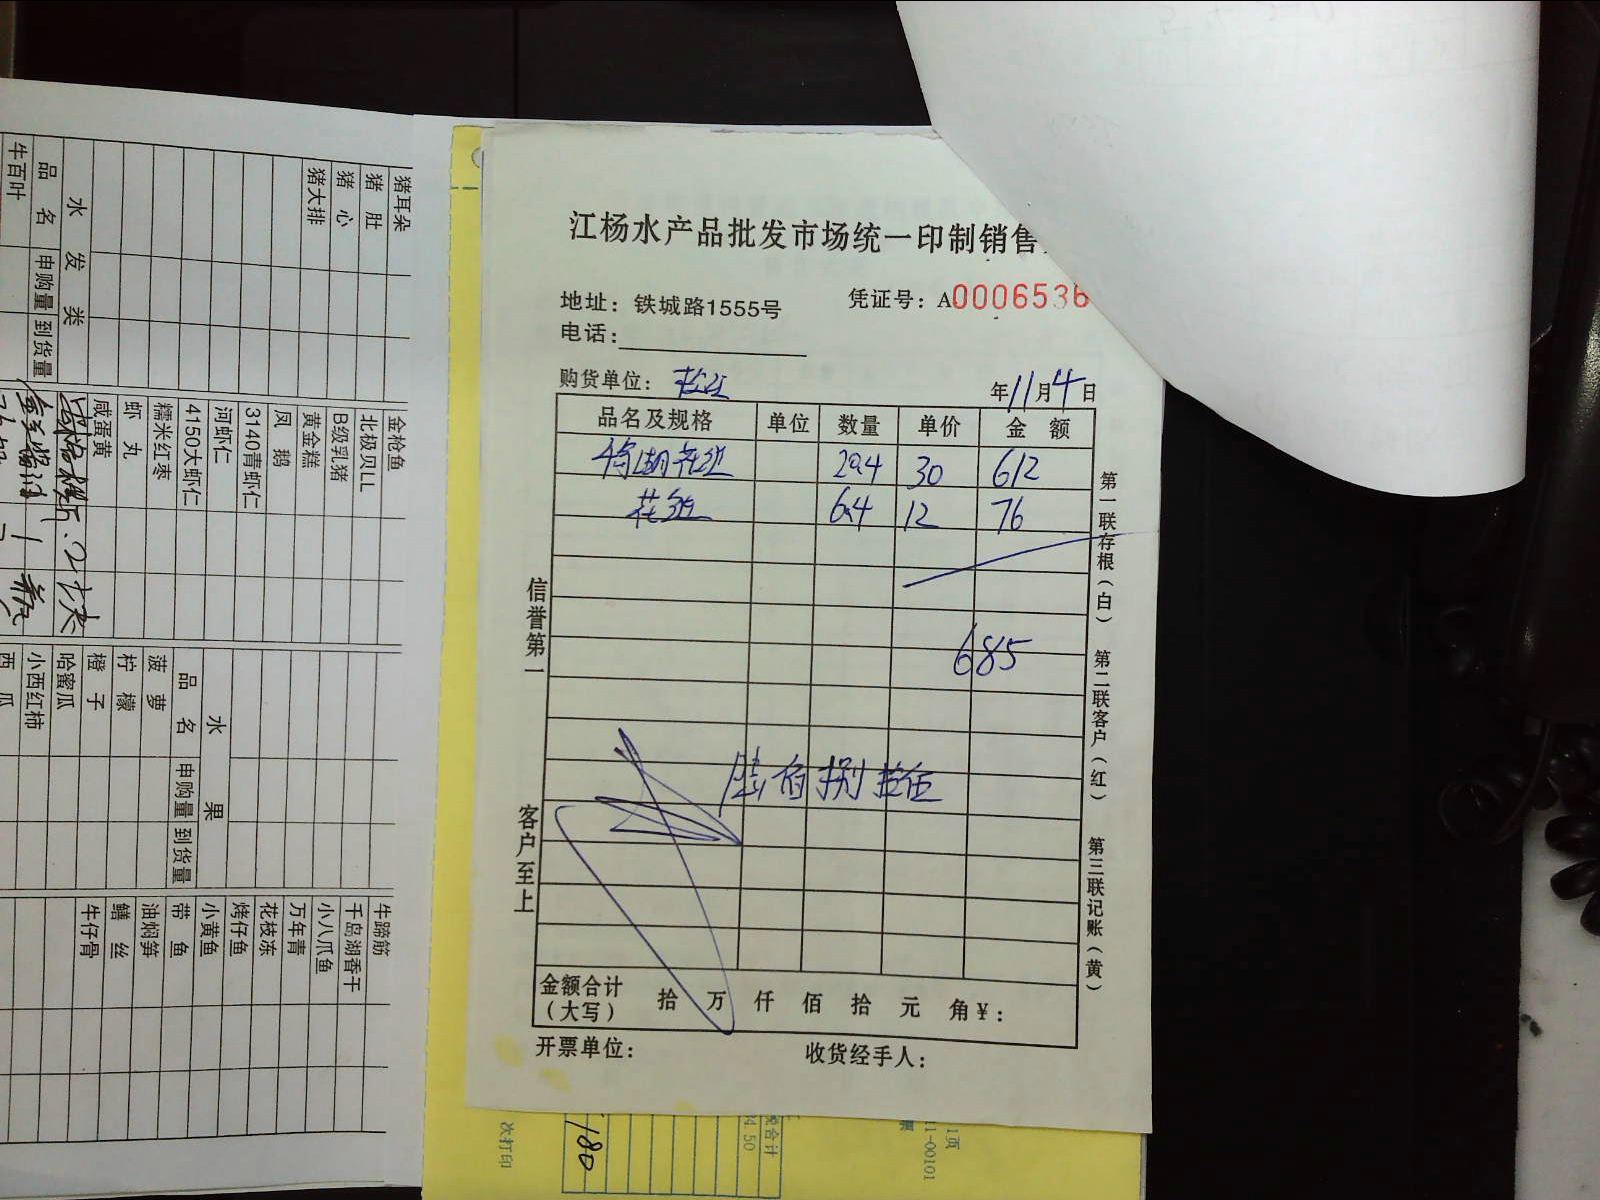 江杨水产品批发市场统一印制销售
地址：铁城路1555号
凭证号：A0006536
电话：
购货单位：
年11月4日
品名及规格 单位 数量 单价 金额
20.4 30 612
花鲢 6.4 12 76
685
陆佰捌拾伍
金额合计（大写） 拾 万 仟 佰 拾 元 角￥：
开票单位：
收货经手人：
信誉第一
客户至上
第一联存根（白） 第二联客户（红） 第三联记账（黄）
猪耳朵
猪肚
猪心
猪大排
水发类
品名 申购量 到货量
牛百叶
金枪鱼
北极贝LL
B级乳猪
黄金糕
凤鹅
3140青虾仁
河虾仁
4150大虾仁
糯米红枣
虾丸
咸蛋黄
水果
品名 申购量 到货量
菠萝
柠檬
橙子
哈蜜瓜
小西红柿
西瓜
牛蹄筋
千岛湖香干
小八爪鱼
万年青
花枝冻
烤仔鱼
小黄鱼
带鱼
油焖笋
鳝丝
牛仔骨
180
次打印
税合计
4.50
1页
11-00101
票